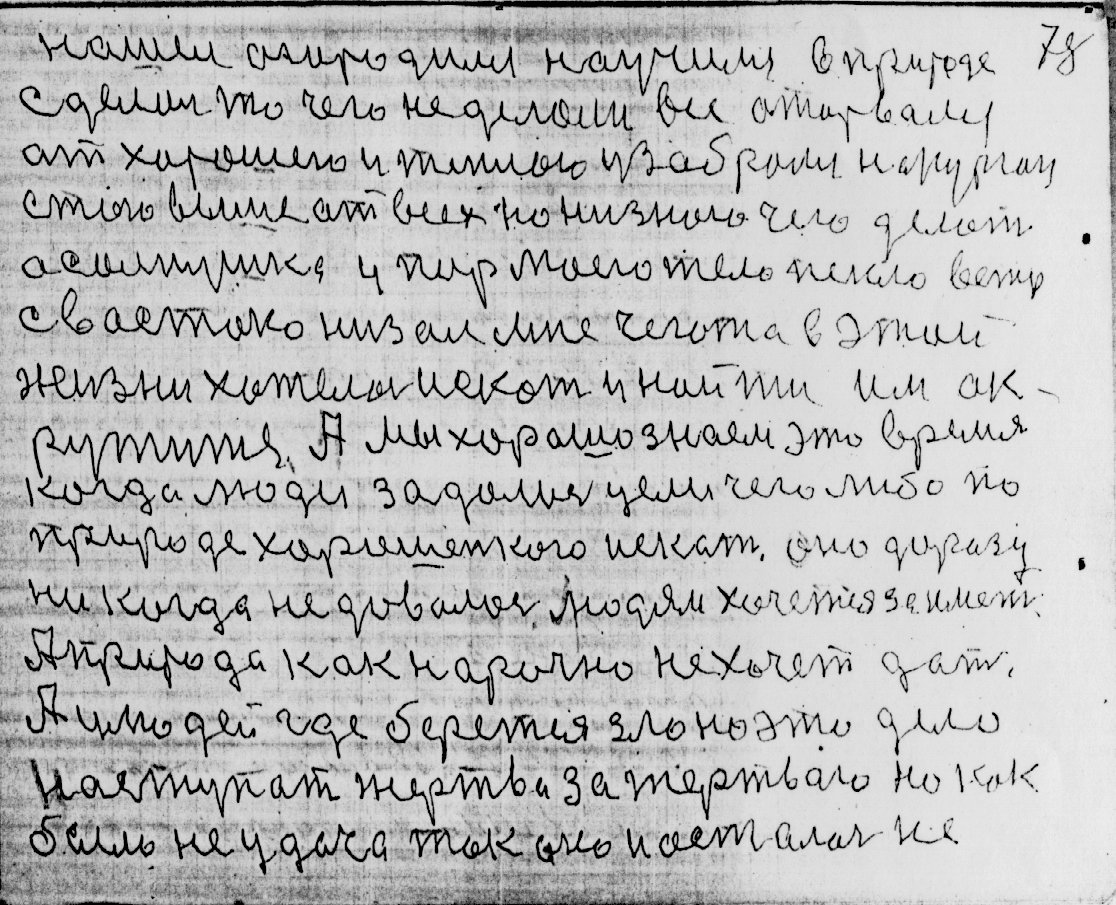 нашли агиродили научился в природе 78
сделали то чего не делали все оторвали
ат хорошего и теплого и забрали на курган
стою выше ат всех по низного чего делат
а солнушка упир моего тело пекло ветр
с востоко низал мне чегото в этой
жизни хотелос искат и найти им ак-
рутится. А мы хорашо знаем это время
когда люди задалис цели чего либо по
природе харошенкого искат. оно досразу
никогда не довалос, людям хочется заимет.
А природа как нарочно не хочет дат.
А улюдей где берется зло на это дело
настпупат жертва за жертваго но как
было не удача так оно и осталос не